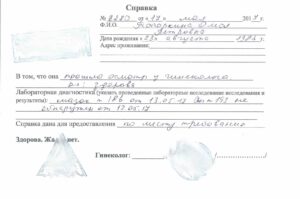 Справка
№ 2280 от 17 мая 2017 г.
Ф.И.О. Топоркина Олся
Петровна
Дата рождения « 23 » августа 1986 г.
Адрес проживания:
В том, что она прошла осмотр у гинеколога
здорова
Лабораторная диагностика (указать проведенные лабораторные исследования и
результаты): мазок № 186 от 13.05.17 не
обнаружены от 17.05.17
Справка дана для предоставления по месту требования
Здорова.
Гинеколог: